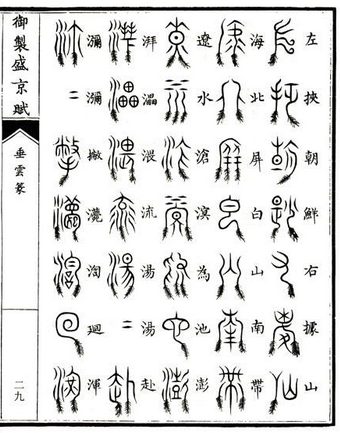 左挾朝鮮右據山
海北屏白山南帶
遼水滄溟為池澎
湃渨流湯湯赴
瀰瀰撇淘廻渾
御製盛京賦
垂雲篆
二九